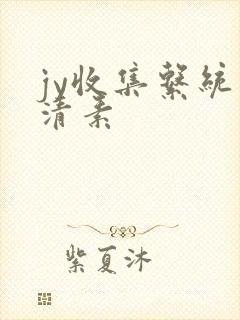 jv收集繫統
清素
紫夏沐